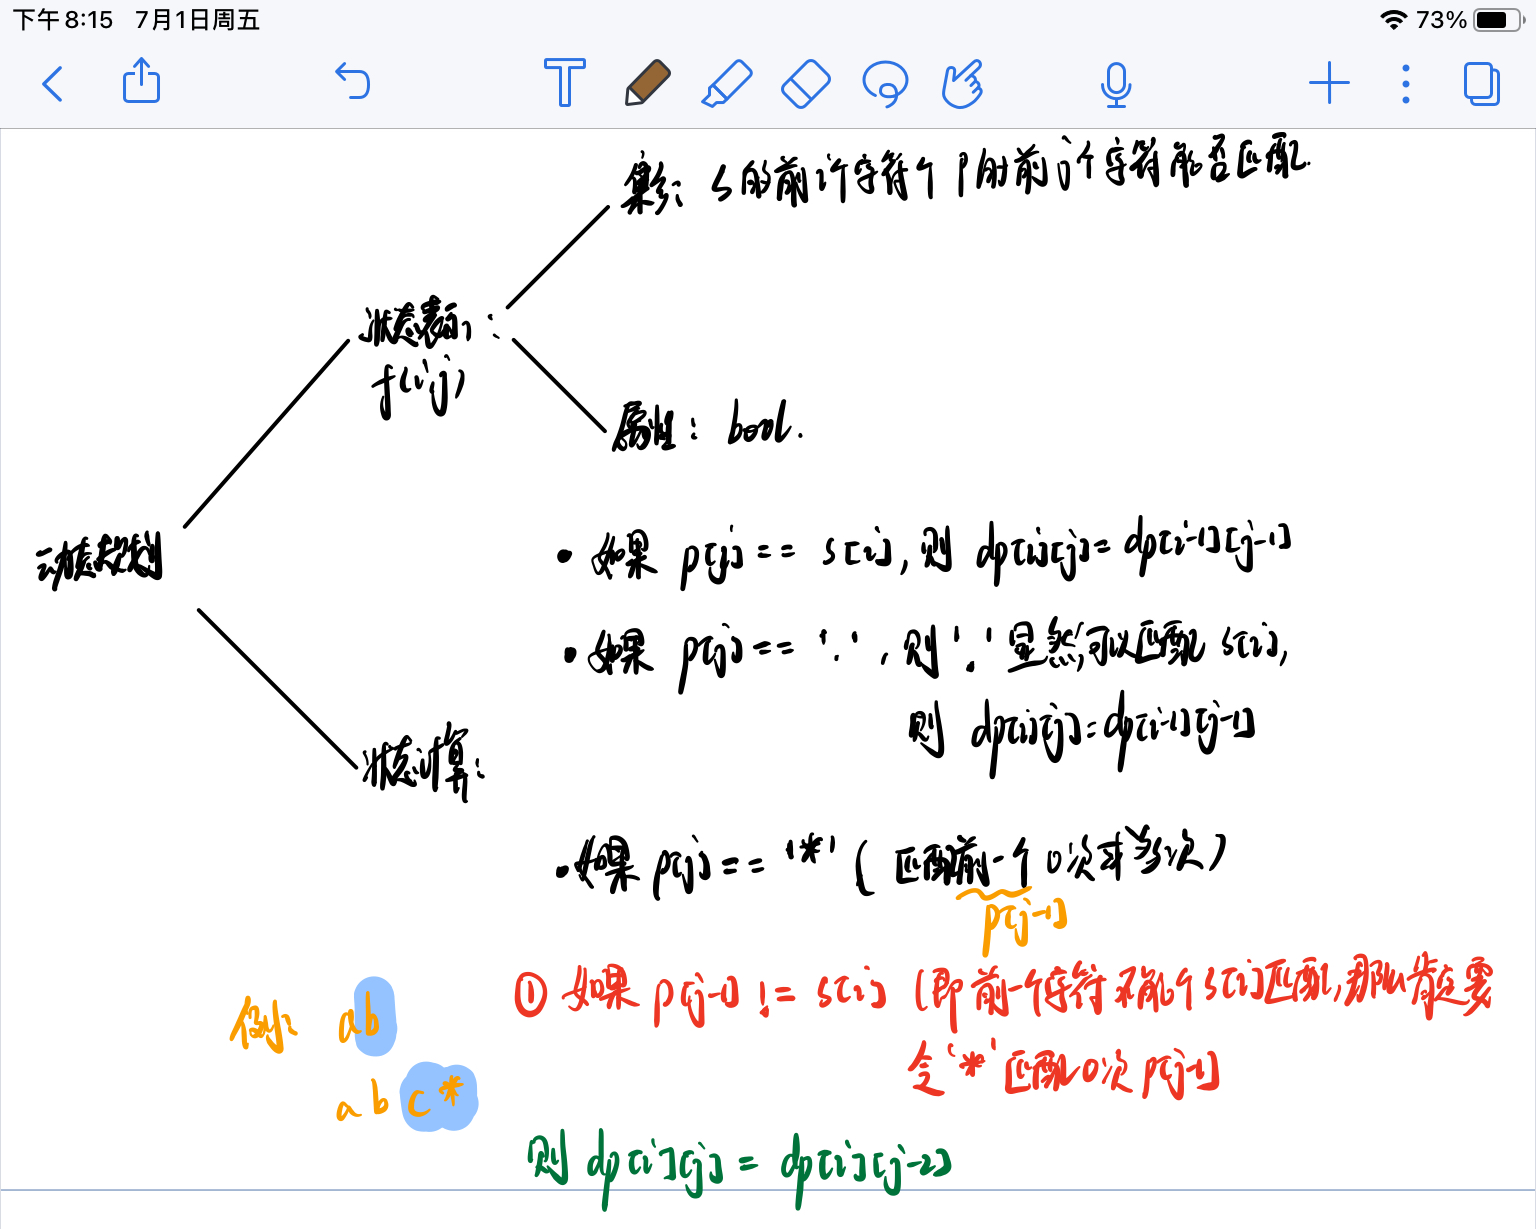 下午8:15 7月1日周五
73%
集合: s的前i个字符个p的前j个字符能否匹配.
状态表示:
f(i,j)
属性: bool.
动态规划
• 如果 p[j] == s[i], 则 dp[i][j] = dp[i-1][j-1]
• 如果 p[j] == '.', 则'.'显然可以匹配 s[i],
则 dp[i][j] = dp[i-1][j-1]
状态计算:
• 如果 p[j] == '*' ( 匹配前一个 0次或多次)
p[j-1]
① 如果 p[j-1] != s[i] (即前一个字符不能个s[i]匹配, 那么肯定要
令'*'匹配0次 p[j-1]
例: ab
abc*
则 dp[i][j] = dp[i][j-2]